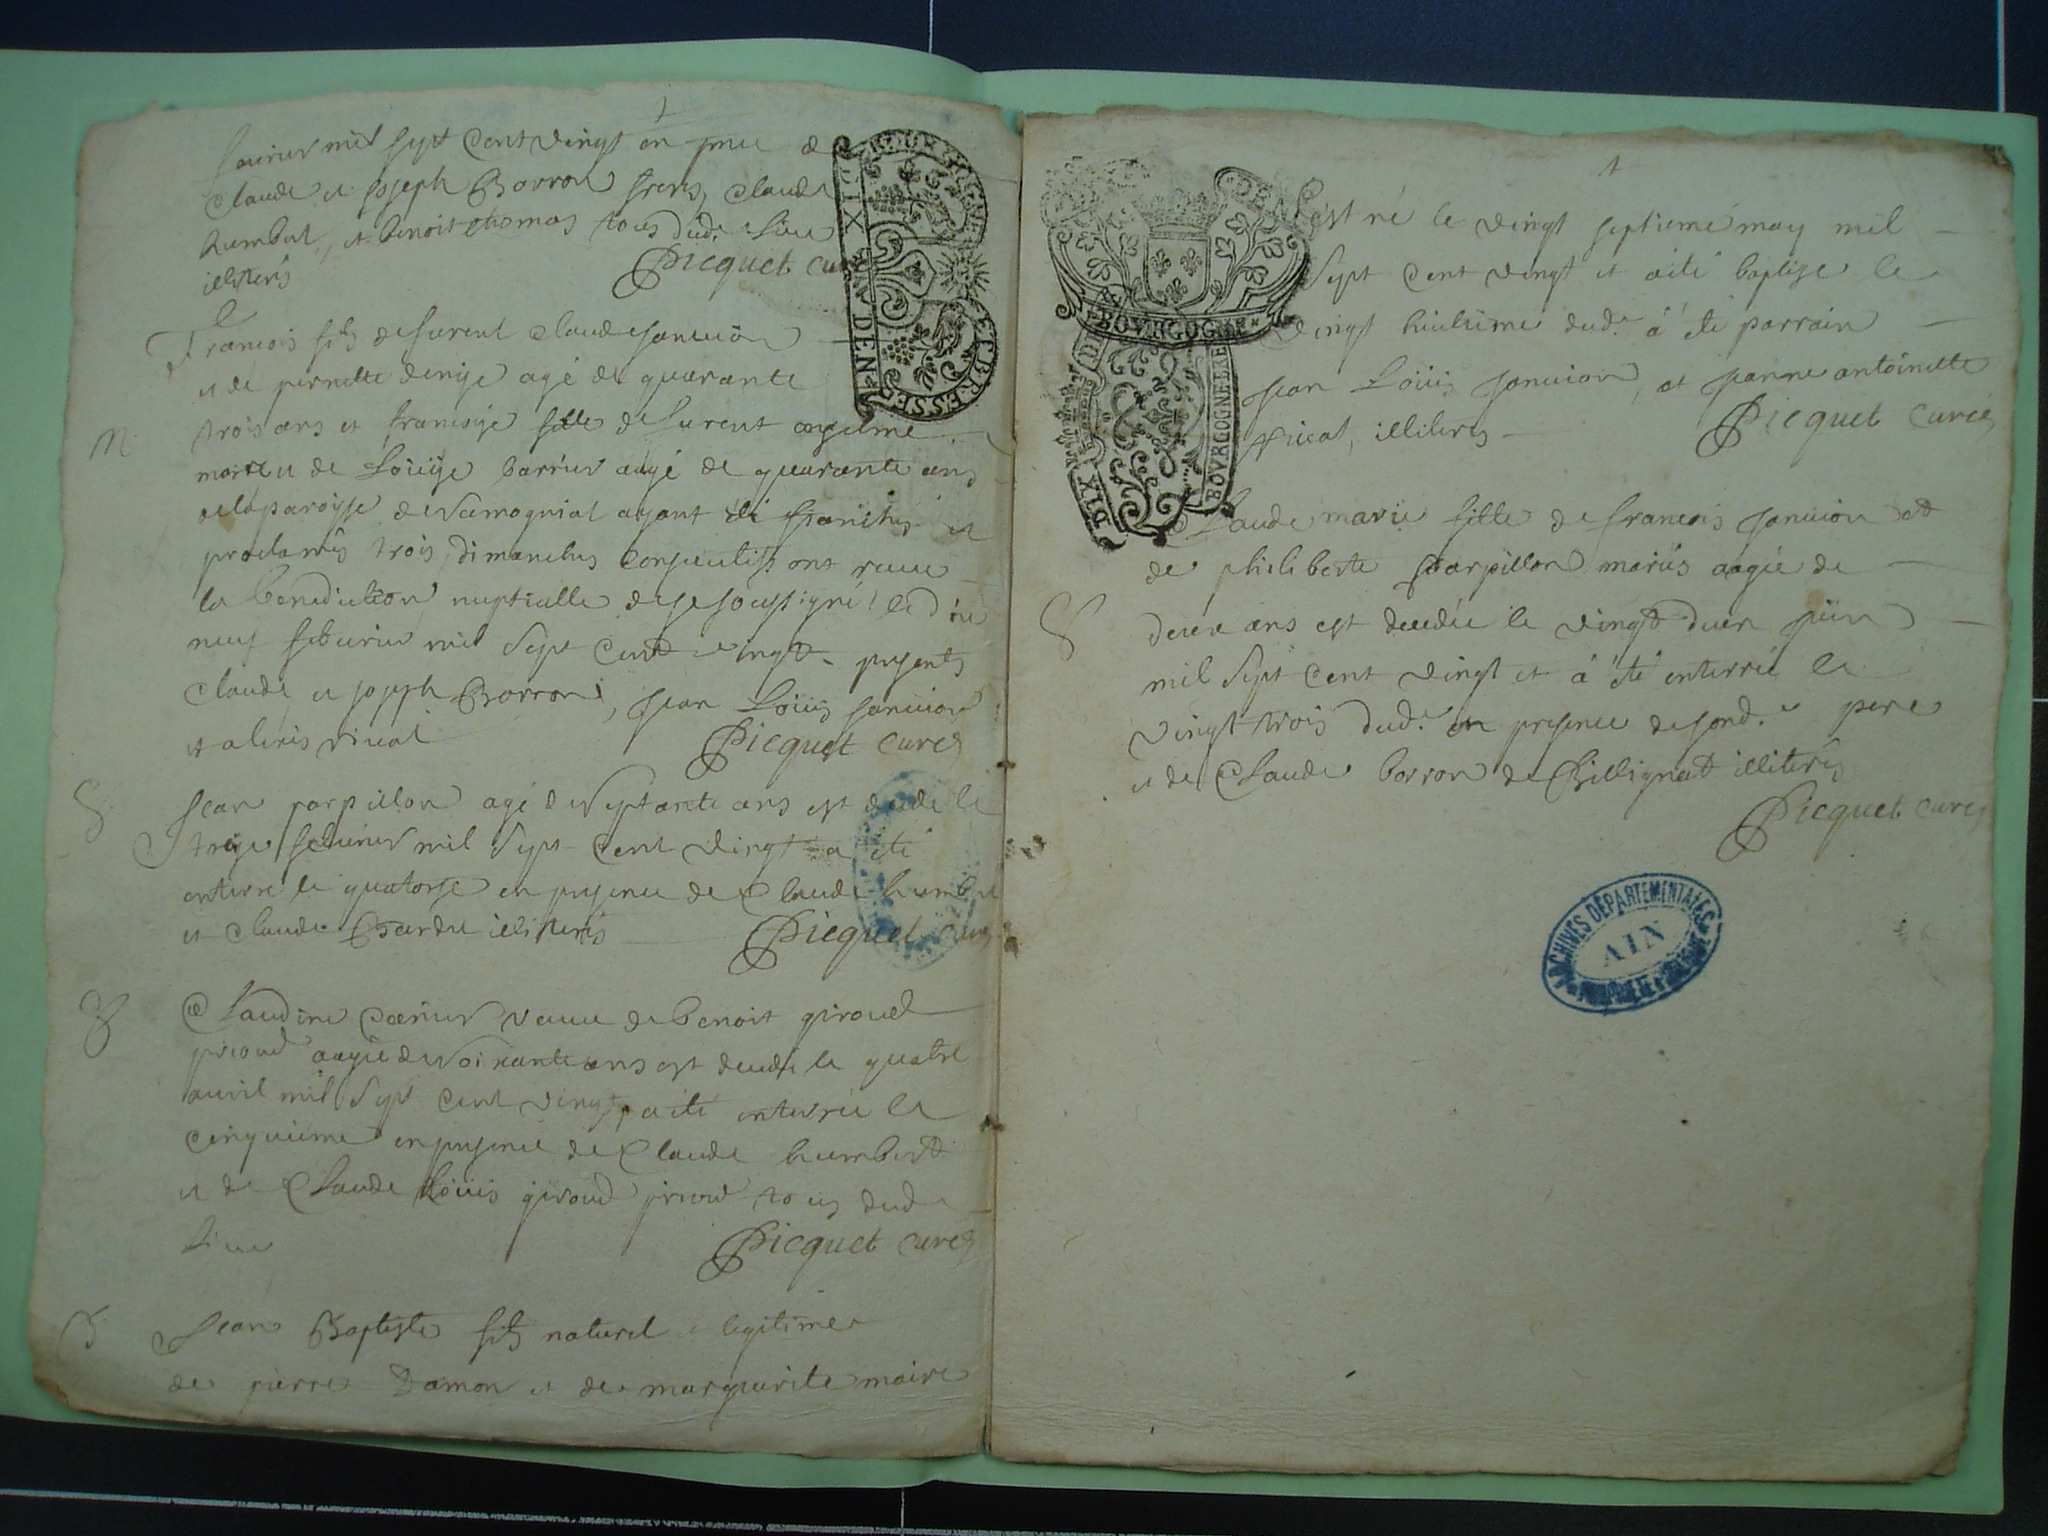 feurier mil sept cent vingt en pnce de
Claude et joseph Borron freres, Claude
humbert, et benoit thomas tous dud. Lieu
illiterés
Picquet curé
francois fils de furent Claude januion
et de pernette denise agé de quarante
trois ans et francoise fille de furent anselme
N
et de Loüise barrier aagé de quarante ans
de la paroisse de ayant été et
proclamés trois dimanches consecutifs ont receu
la benediction nuptialle de je soussigné le dix
neuf feburier mil Sept Cent vingt presents
Claude et joseph Borron, jean Loüis januion
et aleris vicat
Picquet curé
S
Jean parpillon agé de septante ans est decede le
treize feburier mil Sept Cent vingt a été
enterré le quatorse en presence de Claude humbert
et Claude illiterés
Picquet curé
S
Claudine veuue de benoit girouel
priond aagée de soixante ans est decedée le quatre
auril mil Sept Cent vingt a été enterrée le
cinquième en presence de Claude humbert
et de Claude Loüis giroud priond tous dud.
Lieu
Picquet curé
B
Jean Baptiste fils naturel e legitime
de pierre Damon et de marguerite maire
DIX DEN.
BOURGOGNE ECBRESSE
DEN
BOVRGOGNE
DIX
BOVRGONE BRE
est né le vingt septieme may mil
Sept Cent vingt et a été baptizé le
vingt huitieme dud. à été parrain
jean Loüis januion, et jeanne antoinette
vicat, illiterés
Picquet curé
Claude marie fille de francois januion et
de philiberte parpillon mariés aagée de
S
deux ans est decedée le vingt deux juin
mil Sept Cent vingt et à été enterrée le
vingt trois dud. en presence de sond. pere
et de Claude borron de Billignat illiterés
Picquet curé
ARCHIVES DÉPARTEMENTALES
AIN